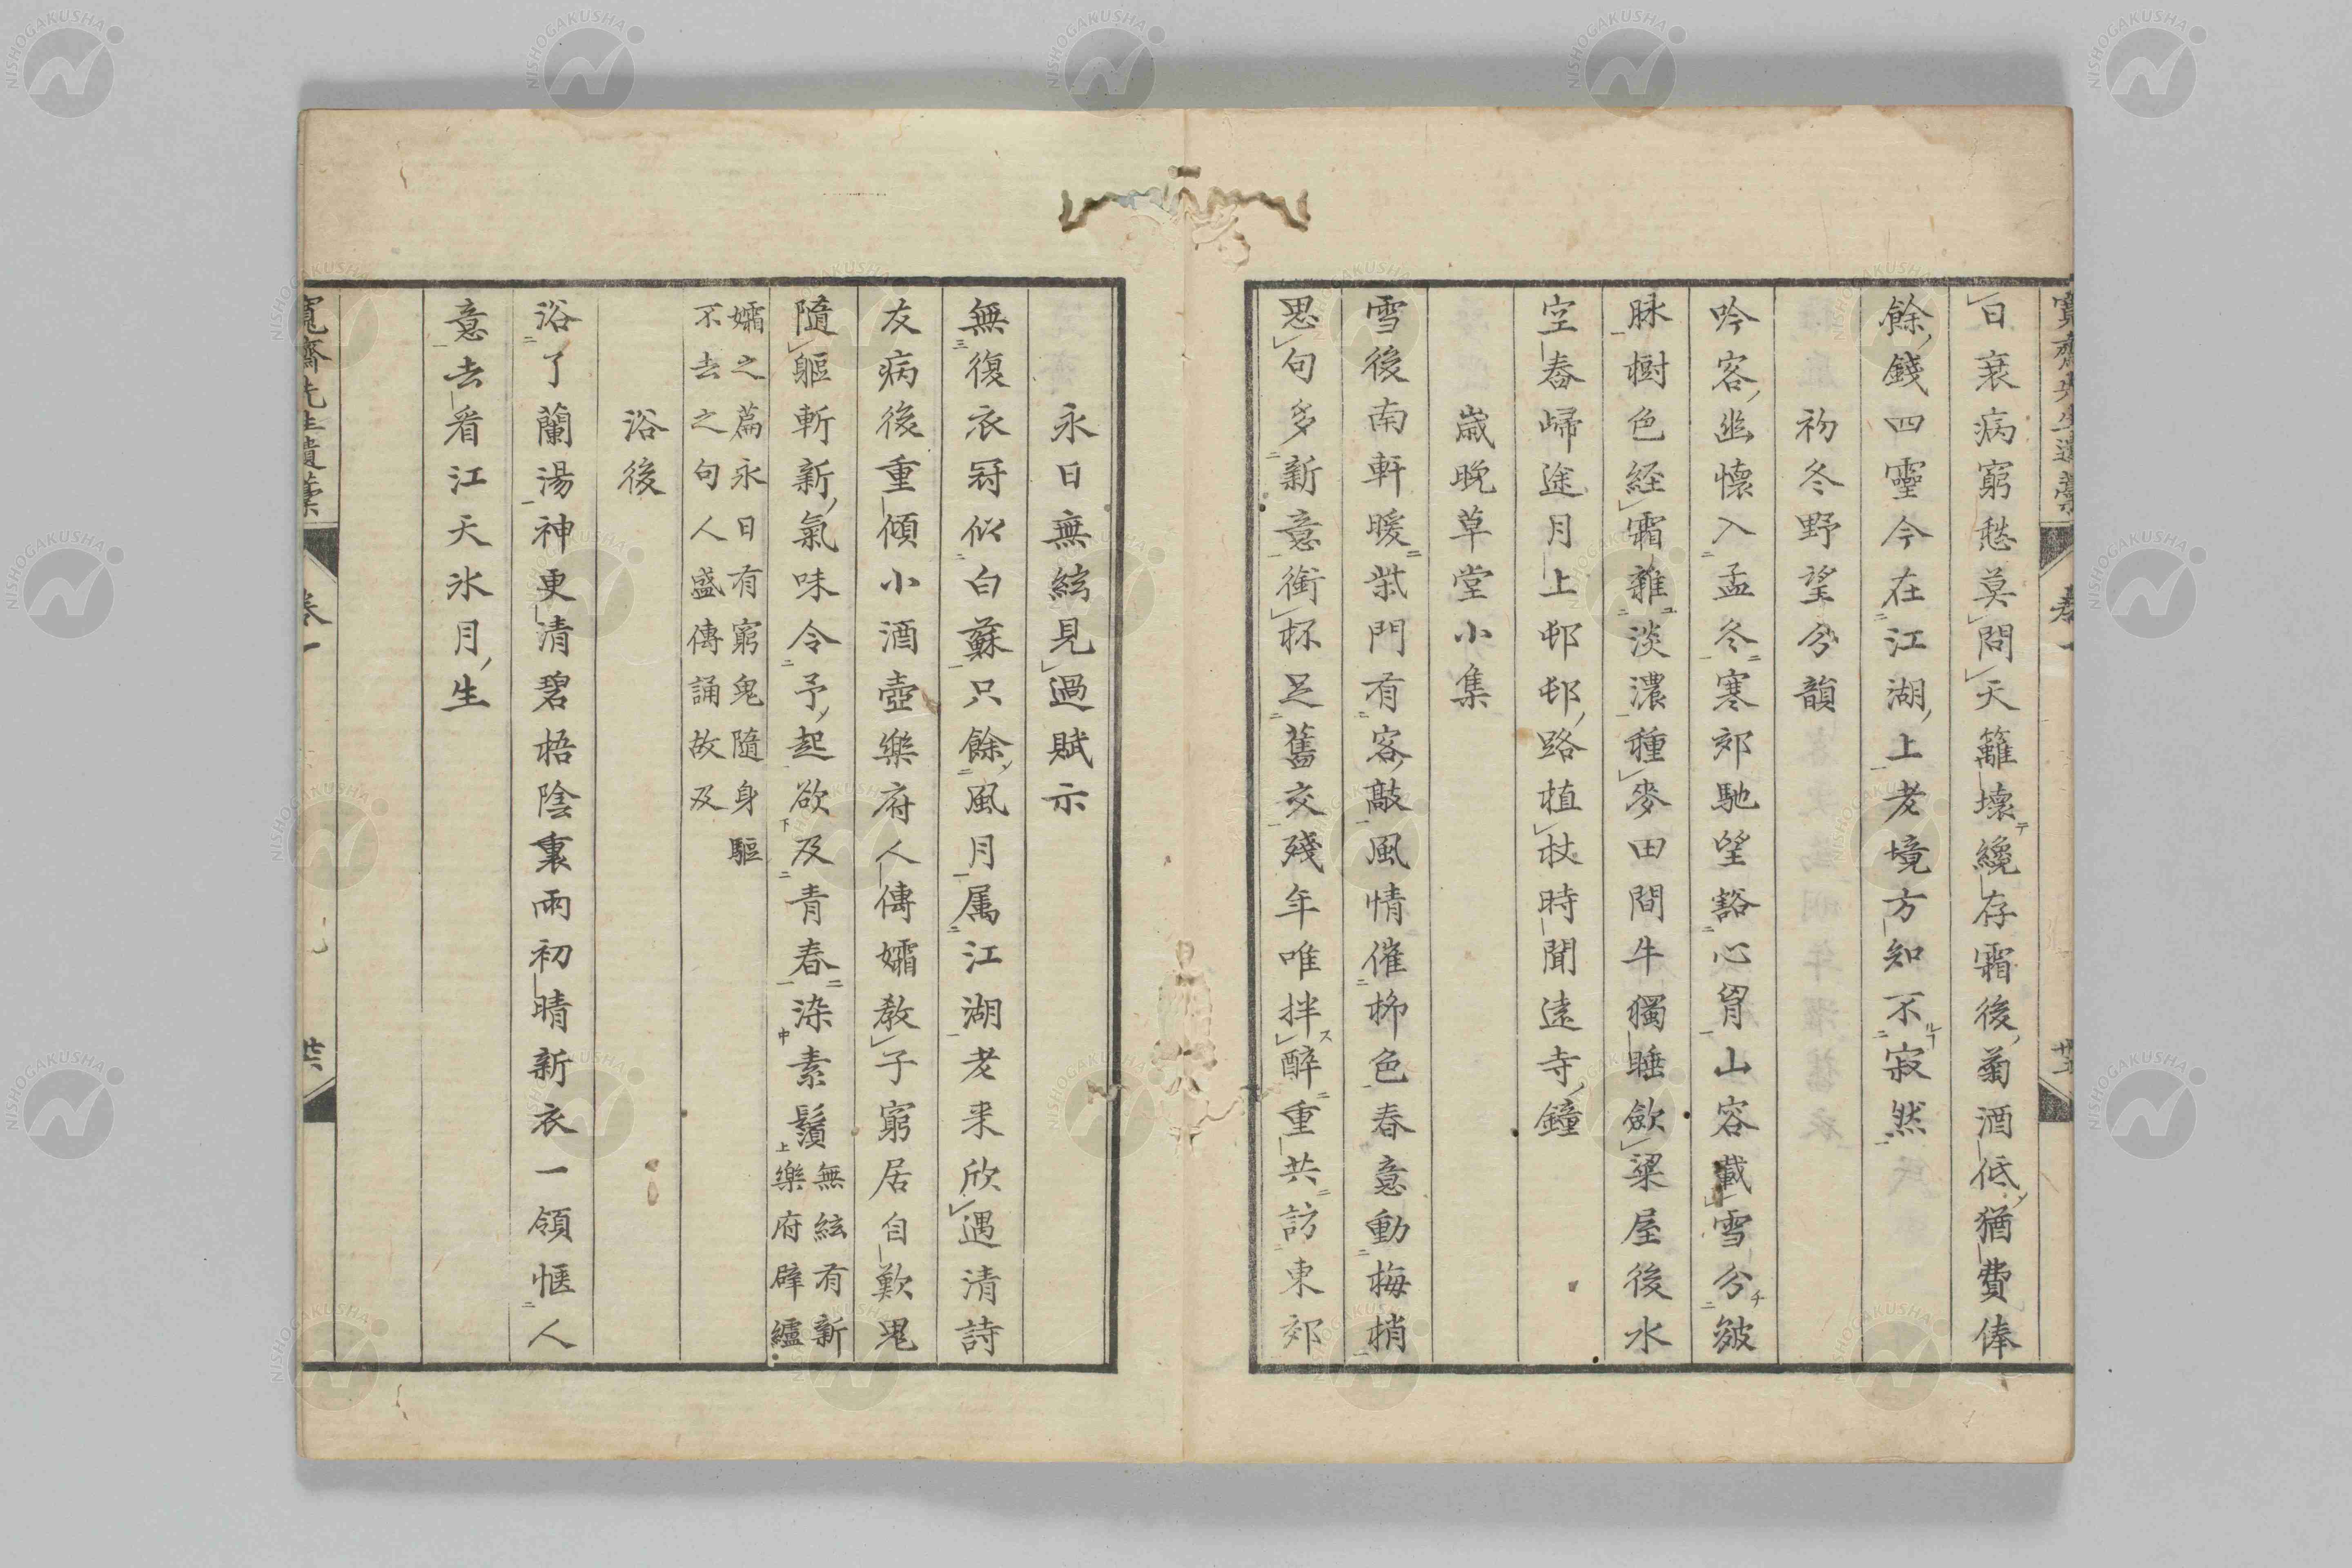 寬齋先生遺藁 卷一 廿五
日衰病窮愁莫問天籬壞纔存霜後菊酒低猶費俸
餘錢四靈今在江湖上老境方知不寂然
初冬野望分韻
吟客幽懷入孟冬寒郊馳望豁心胷山容載雪分皴
脉樹色経霜雜淡濃種麥田間牛獨睡斂粱屋後水
空舂歸途月上邨邨路植杖時聞遠寺鐘
歲晚草堂小集
雪後南軒暖柴門有客敲風情催栁色春意動梅梢
思句多新意銜杯足舊交殘年唯拌醉重共訪東郊
永日無絃見過賦示
無復衣冠似白蘇只餘風月属江湖老来欣遇清詩
友病後重傾小酒壺樂府人傳孀教子窮居自歎鬼
隨軀斬新氣味令予起欲及青春染素鬚
無絃有新
樂府辟纑
孀之篇永日有窮鬼隨身驅
不去之句人盛傳誦故及
浴後
浴了蘭湯神更清碧梧陰裏雨初晴新衣一領愜人
意去看江天氷月生
寬齋先生遺藁 卷一 廿六